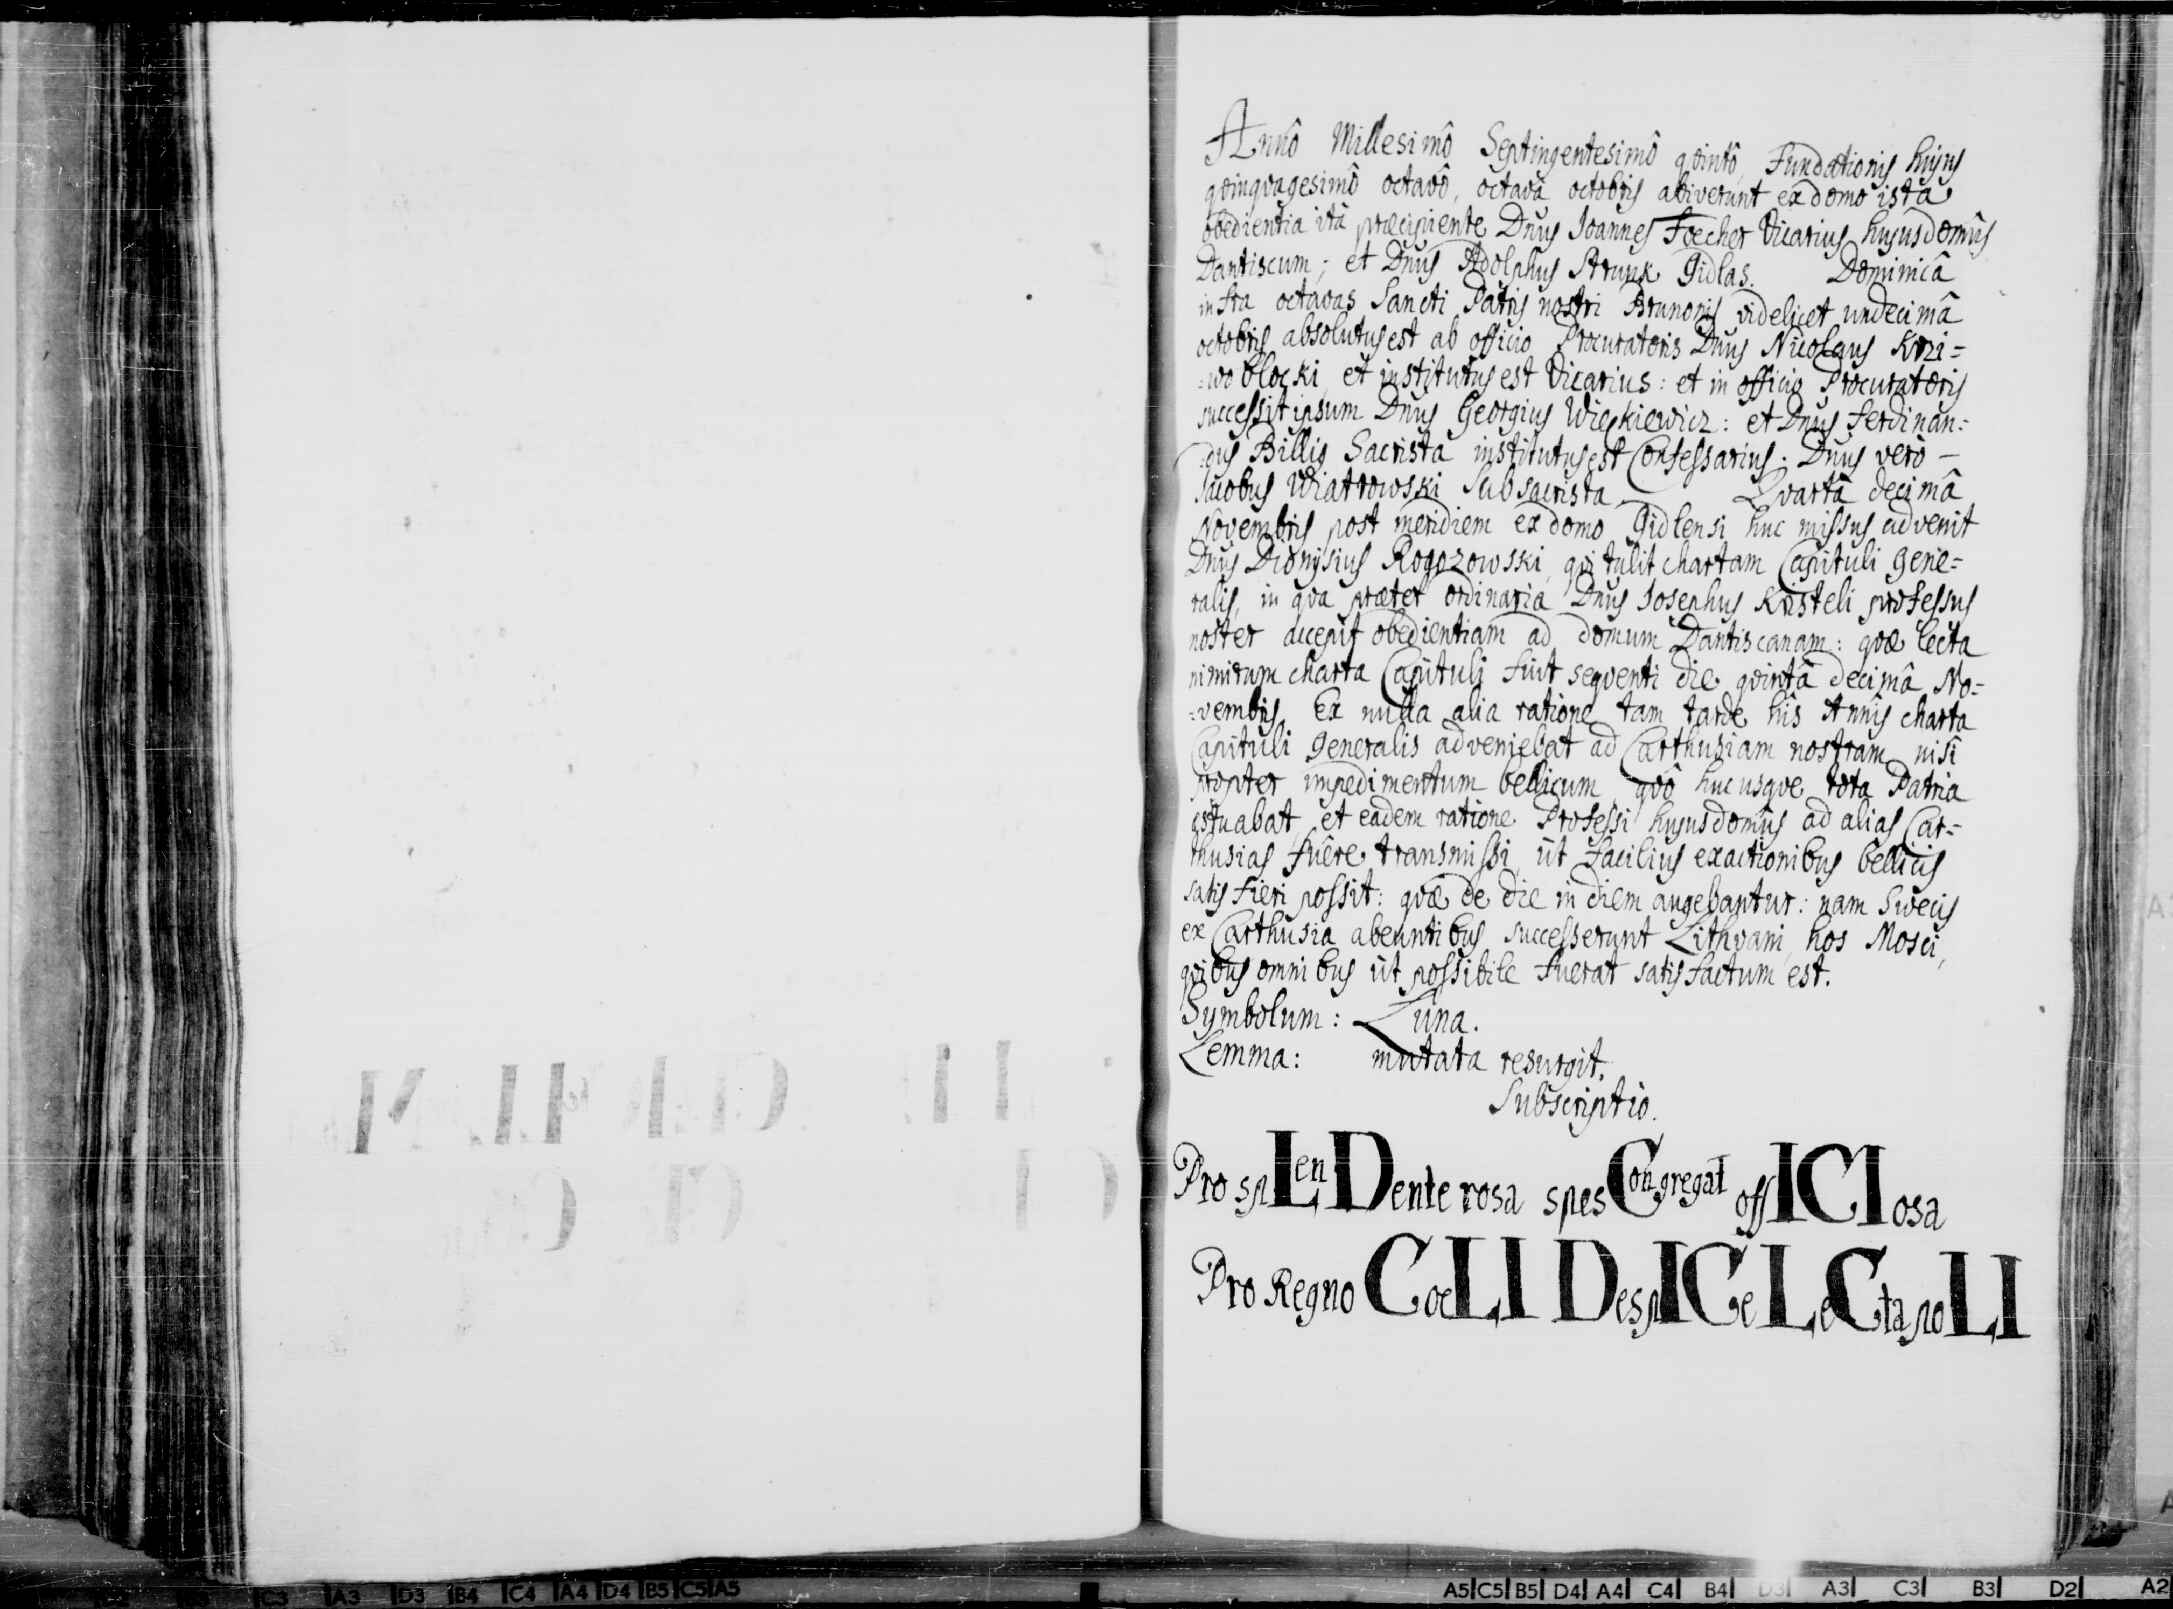 Annô Millesimô Septingentesimô qvintô, Fundationis hujus
qvinqvagesimô octavô, octavâ octobris abiverunt ex domo ista
obedientia ità præcipiente Dnus Joannes Foecher Vicarius hujus domûs
Dantiscum; et Dnus Adolphus Strunk Gidlas. Dominicâ
infra octavas Sancti Patris nostri Brunonis videlicet undecimâ
octobris absolutus est ab officio Procuratoris Dnus Nicolaus Krzi=
=wobłocki, et institutus est Vicarius: et in officio Procuratoris
successit ipsum Dnus Georgius Więckiewicz: et Dnus Ferdinan=
=dus Billig Sacrista institutus est Confessarius. Dnus verò –
Jacobus Wiatrowski Subsacrista. Qvartâ decimâ
Novembris post meridiem ex domo Gidlensi huc missus advenit
Dnus Dionysius Rogozowski, qvi tulit chartam Capituli gene=
ralis, in qva præter ordinaria Dnus Josephus Kristeli professus
noster accepit obedientiam ad domum Dantiscanam: qvæ lecta
nimirum charta Capituli fuit seqventi die qvintâ decimâ No=
=vembris. Ex nulla alia ratione tam tarde his Annis charta
Capituli Generalis adveniebat ad Carthusiam nostram nisi
propter impedimentum bellicum, qvô hucusqve tota Patria
æstuabat, et eadem ratione Professi hujus domus ad alias Car=
thusias fuêre transmissi, ut facilius exactionibus bellicis
satis fieri possit: qvæ de die in diem augebantur: nam Svecis
ex Carthusia abeuntibus successerunt Lithvani, hos Mosci,
qvibus omnibus ut possibile fuerat satisfactum est.
Symbolum: Luna.
Lemma: mutata resurgit.
Subscriptio.
Pro spLenDente rosa spes Congregat offICIosa
Pro Regno CoeLI DespICe LeCta poLI
A5 C5 B5 D4 A4 C4 B4 D3 A3 C3 B3 D2 A2
C3 A3 D3 B4 C4 A4 D4 B5 C5 A5